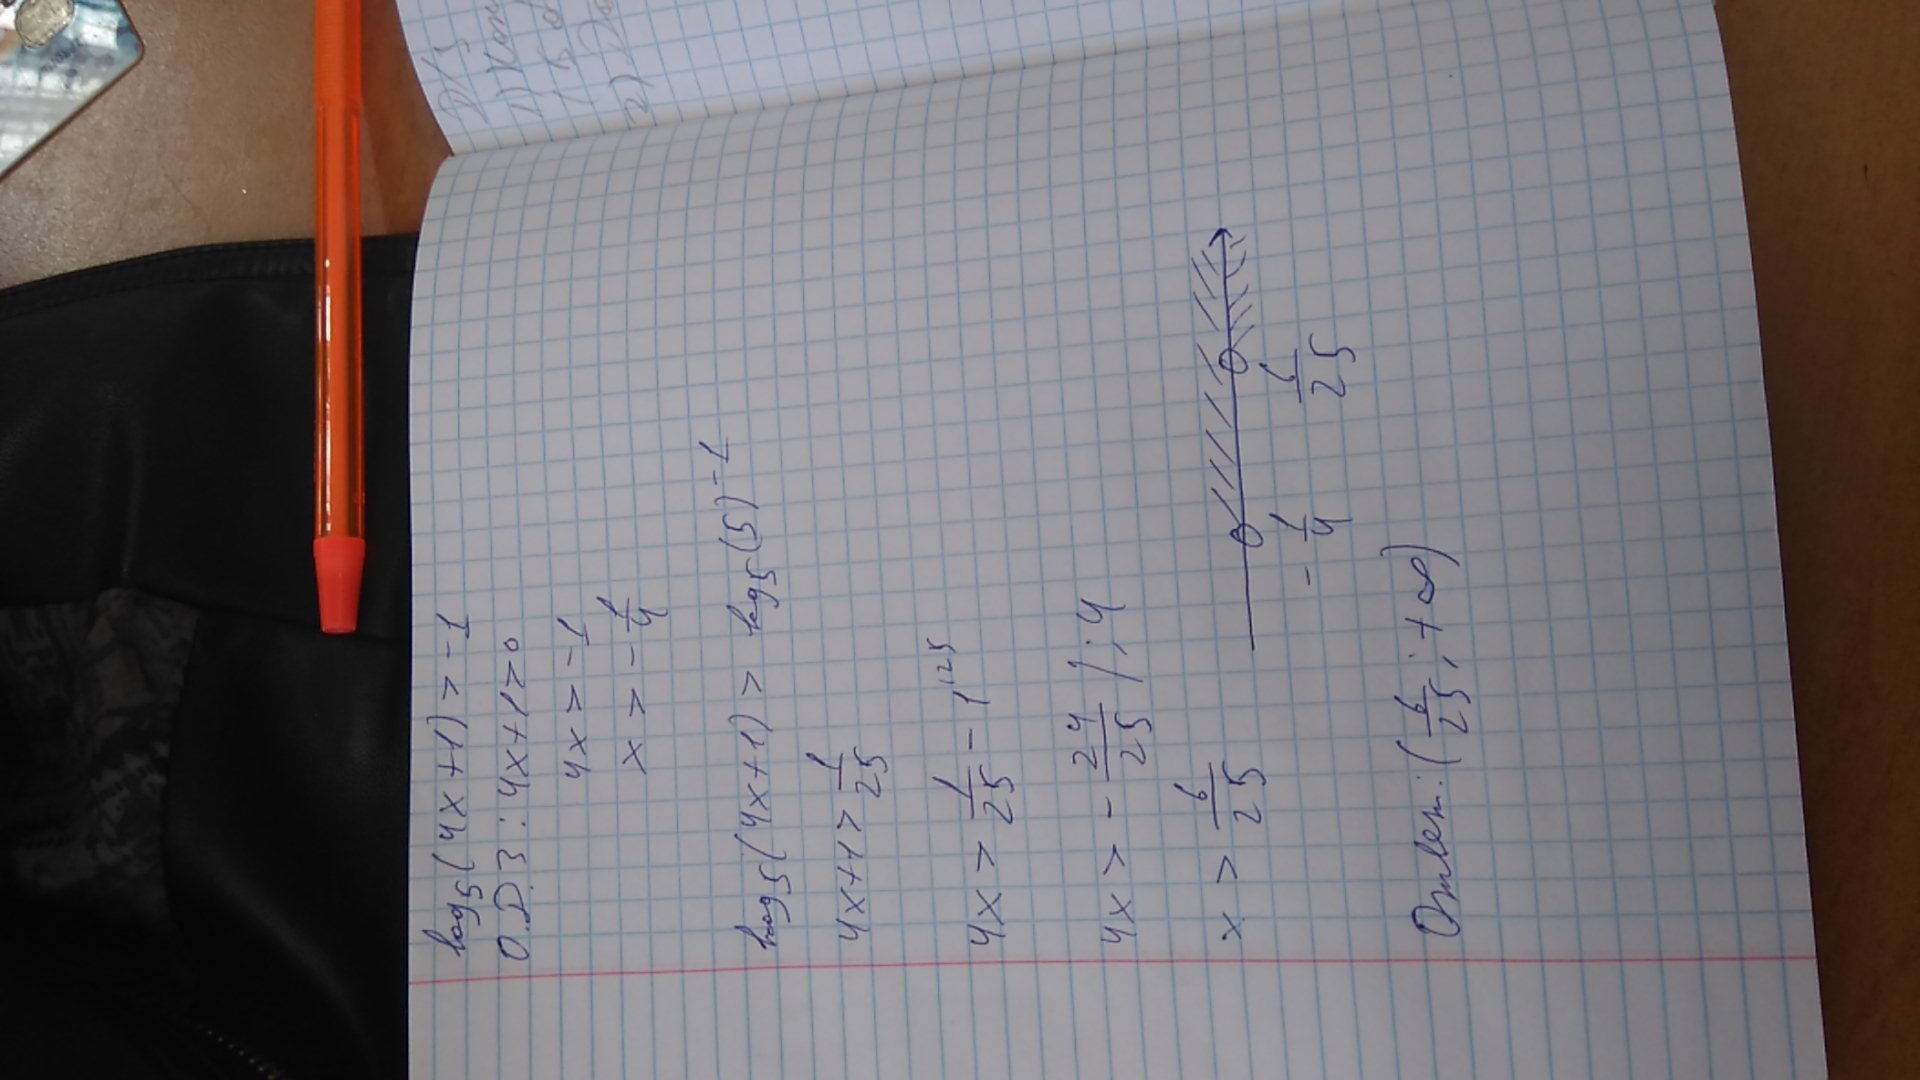 log₅(4x+1) > -1
О.D.З : 4x+1>0
4x > -1
x > -1/4
log₅(4x+1) > log₅(5)⁻¹
4x+1 > 1/25
4x > 1/25 - 1^(125
4x > -24/25 / : 4
x > 6/25
-1/4 6/25
Ответ: (6/25 ; +∞)
D/З
1)
2)